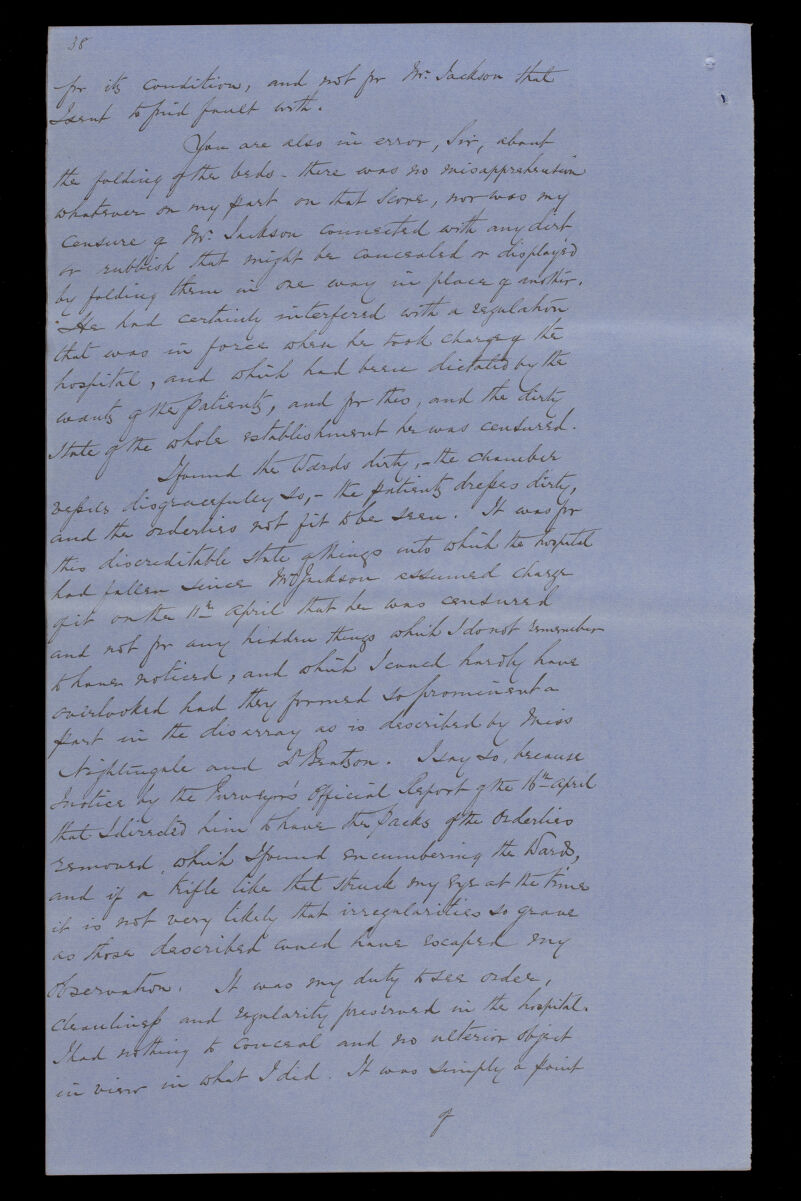 38
for its condition, and not for Mr. Jackson that
I sent to find fault with.
You are also in error, Sir, about
the folding of the beds - there was no misapprehension
whatever on my part on that score, nor was my
censure of Mr. Jackson connected with any dirt
or rubbish that might be concealed or displayed
by folding them in one way in place of another.
He had certainly interfered with a regulation
that was in force when he took charge of the
hospital, and which had been dictated by the
wants of the patients, and for this, and the dirty
state of the whole establishment he was censured.
I found the Wards dirty, - the chamber
vessels disgracefully so, - the patients dresses dirty,
and the orderlies not fit to be seen. It was for
this discreditable state of things into which the hospital
had fallen since Mr. Jackson assumed charge
of it on the 11th April that he was censured
and not for any hidden things which I do not remember
to have noticed, and which I could hardly have
overlooked had they formed so prominent a
part in the disarray as is described by Miss
Nightingale and Dr Beatson. I say so, because
I notice by the Purveyor's Official Report of the 16th April
that I directed him to have the packs of the Orderlies
removed, which I found encumbering the Wards,
and if a trifle like that struck my eye at the time
it is not very likely that irregularities so grave
as those described could have escaped my
observation. It was my duty to see order,
cleanliness and regularity preserved in the hospital.
I had nothing to conceal and no ulterior object
in view in what I did. It was simply a point
of